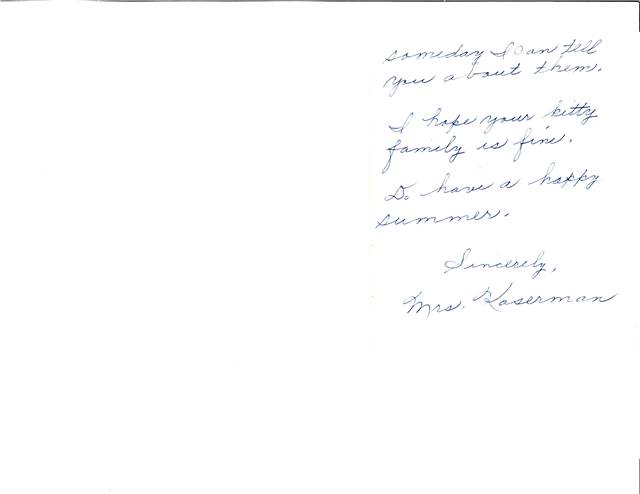 someday I can tell
you about them.
I hope your kitty
family is fine.
Do have a happy
summer.
Sincerely,
Mrs. Kaserman